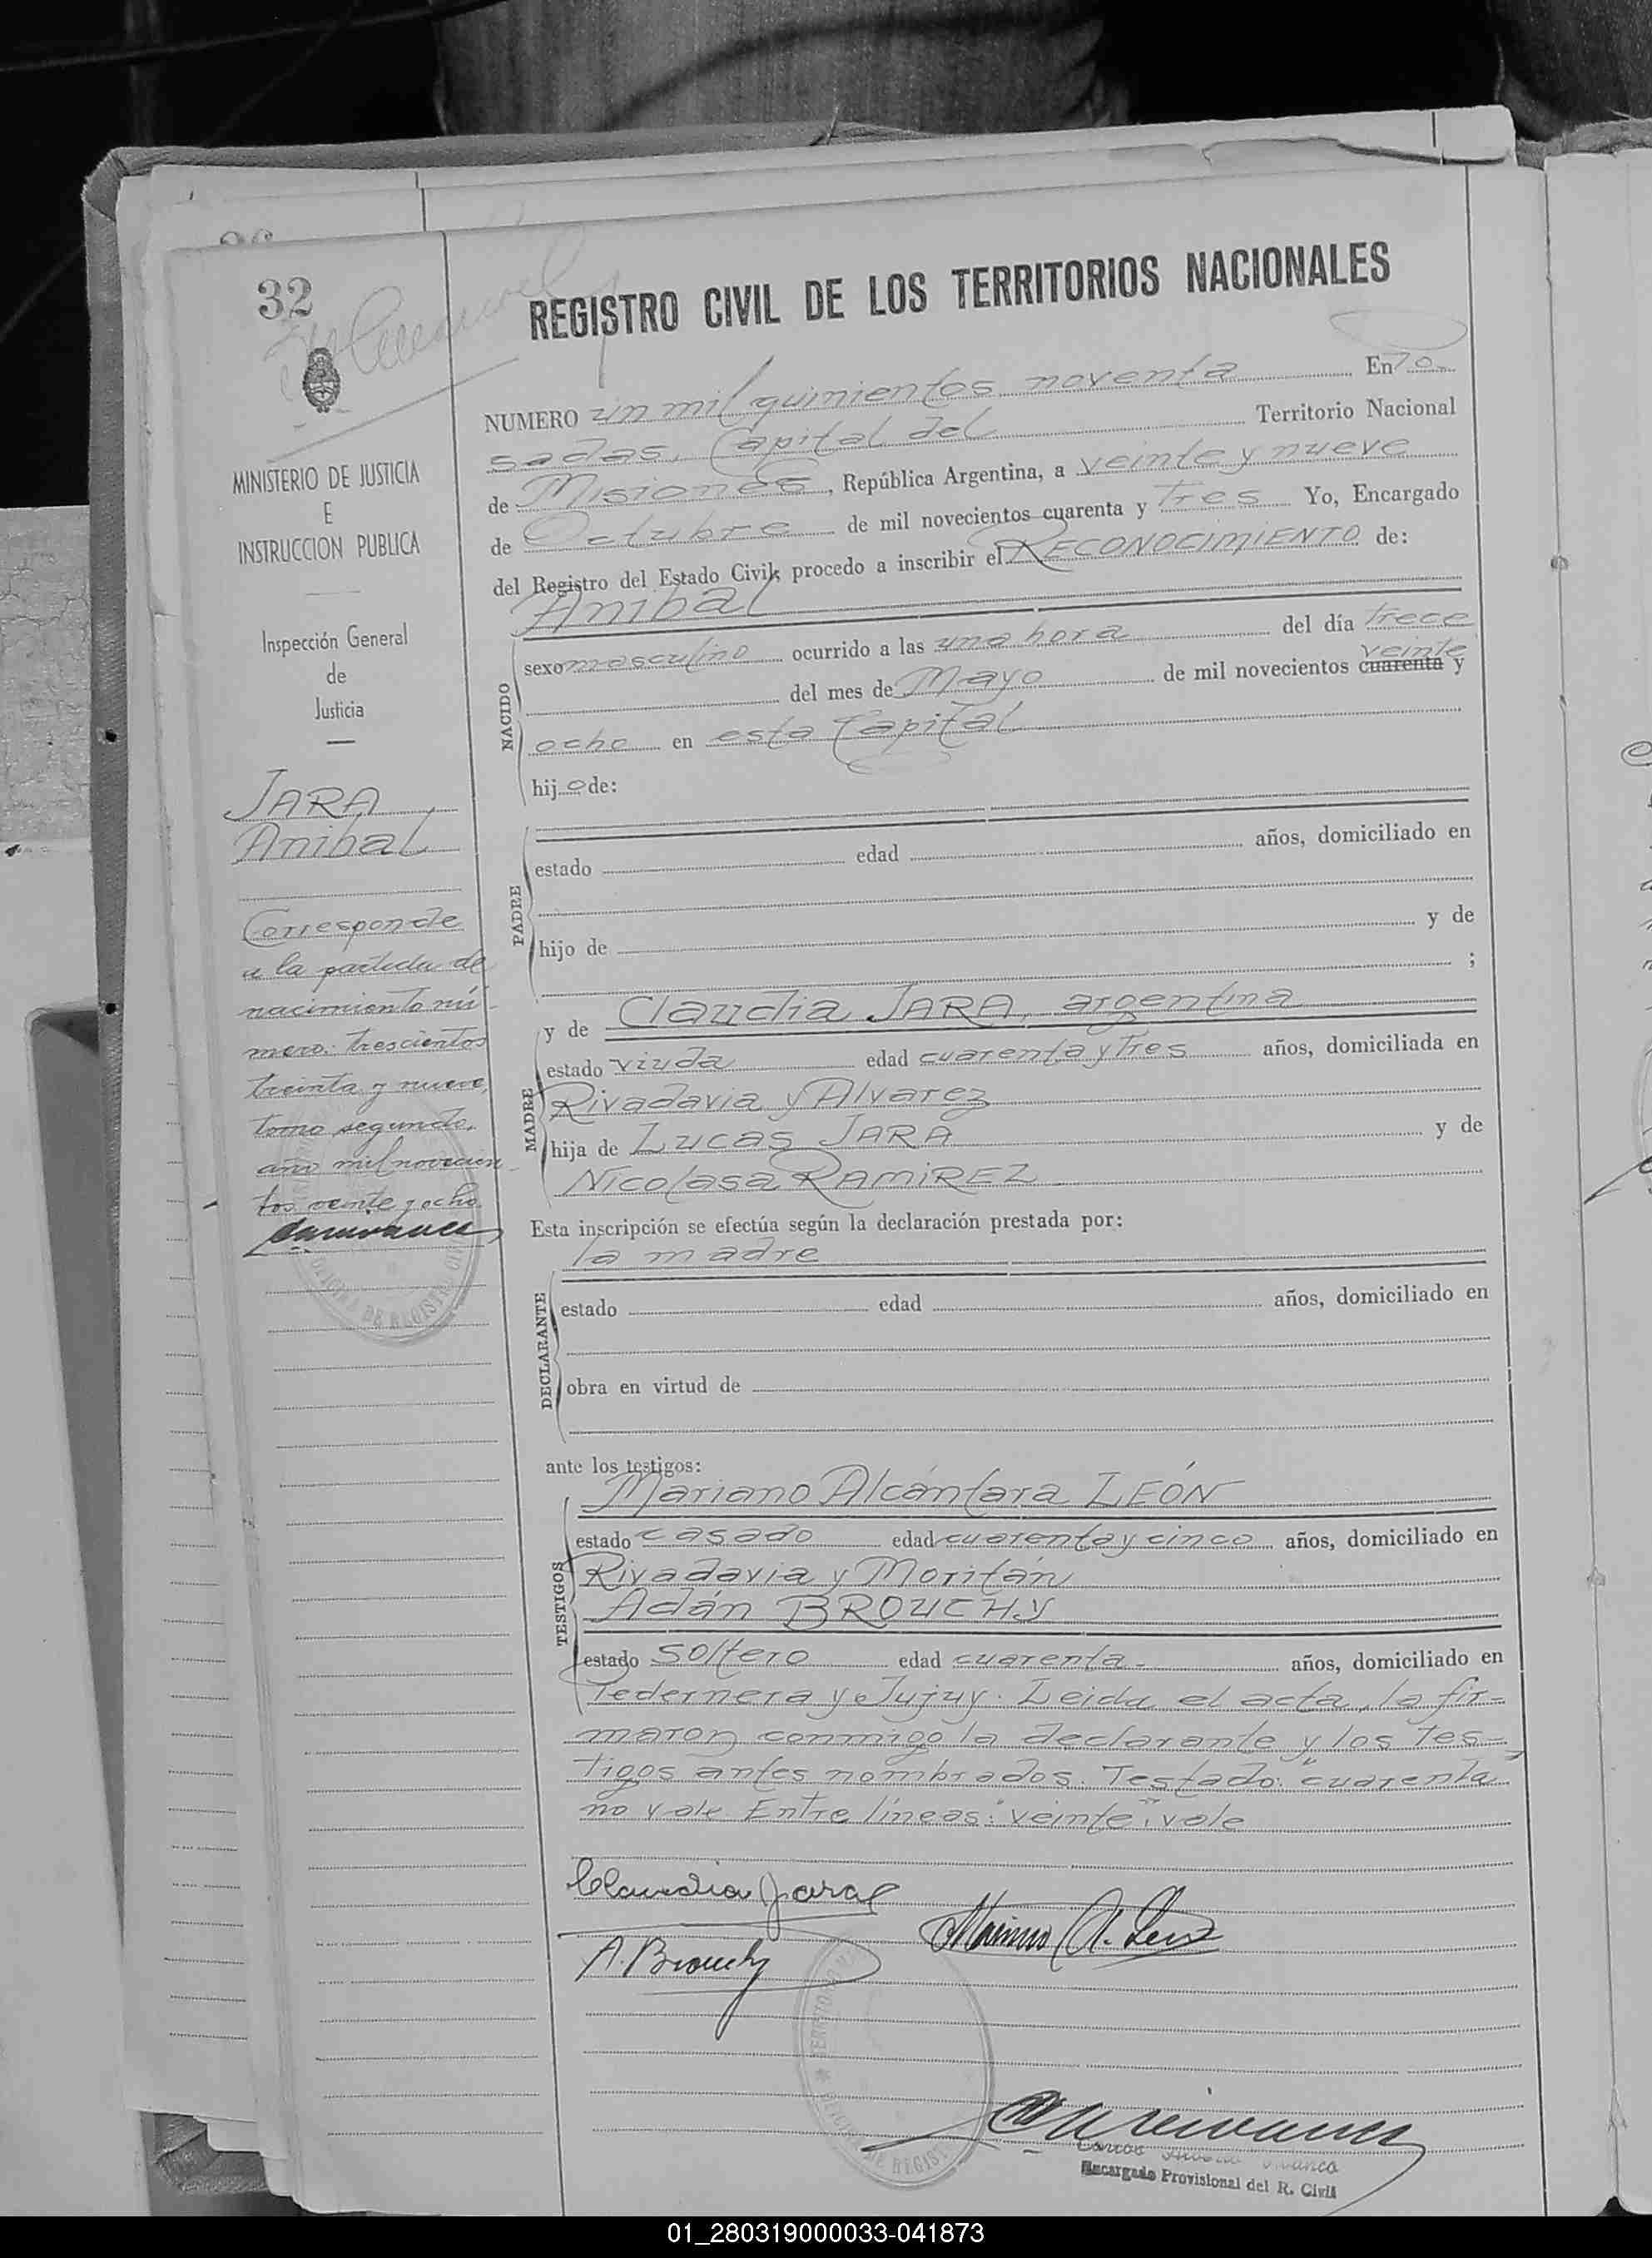 32
REGISTRO CIVIL DE LOS TERRITORIOS NACIONALES
MINISTERIO DE JUSTICIA
E
INSTRUCCION PUBLICA
Inspección General
de
Justicia
JARA
Anibal
Corresponde
a la partida de
nacimiento nú-
mero: trescientos
treinta y nueve,
tomo segundo,
año mil novecien-
tos veinte y ocho.
NUMERO un mil quinientos noventa En Po-
sadas, Capital del Territorio Nacional
de Misiones, República Argentina, a veinte y nueve
de Octubre de mil novecientos cuarenta y tres Yo, Encargado
del Registro del Estado Civil, procedo a inscribir el RECONOCIMIENTO de:
Anibal
NACIDO
sexo masculino ocurrido a las una hora del día trece
veinte
del mes de Mayo de mil novecientos cuarenta y
ocho en esta Capital
hijo de:
PADRE
estado edad años, domiciliado en
hijo de y de
;
y de Claudia JARA, argentina
MADRE
estado viuda edad cuarenta y tres años, domiciliada en
Rivadavia y Alvarez
hija de Lucas JARA y de
Nicolasa RAMIREZ
Esta inscripción se efectúa según la declaración prestada por:
la madre
DECLARANTE
estado edad años, domiciliado en
obra en virtud de
ante los testigos:
Mariano Alcántara LEÓN
TESTIGOS
estado casado edad cuarenta y cinco años, domiciliado en
Rivadavia y Moritán
Adán BROUCHY
estado soltero edad cuarenta- años, domiciliado en
Pedernera y Jujuy. Leida el acta, la fir-
maron conmigo la declarante y los tes-
tigos antes nombrados. Testado: "cuarenta"
no vale Entre líneas: "veinte": vale
Claudia Jara
A. Brouchy
Encargado Provisional del R. Civil
01_280319000033-041873